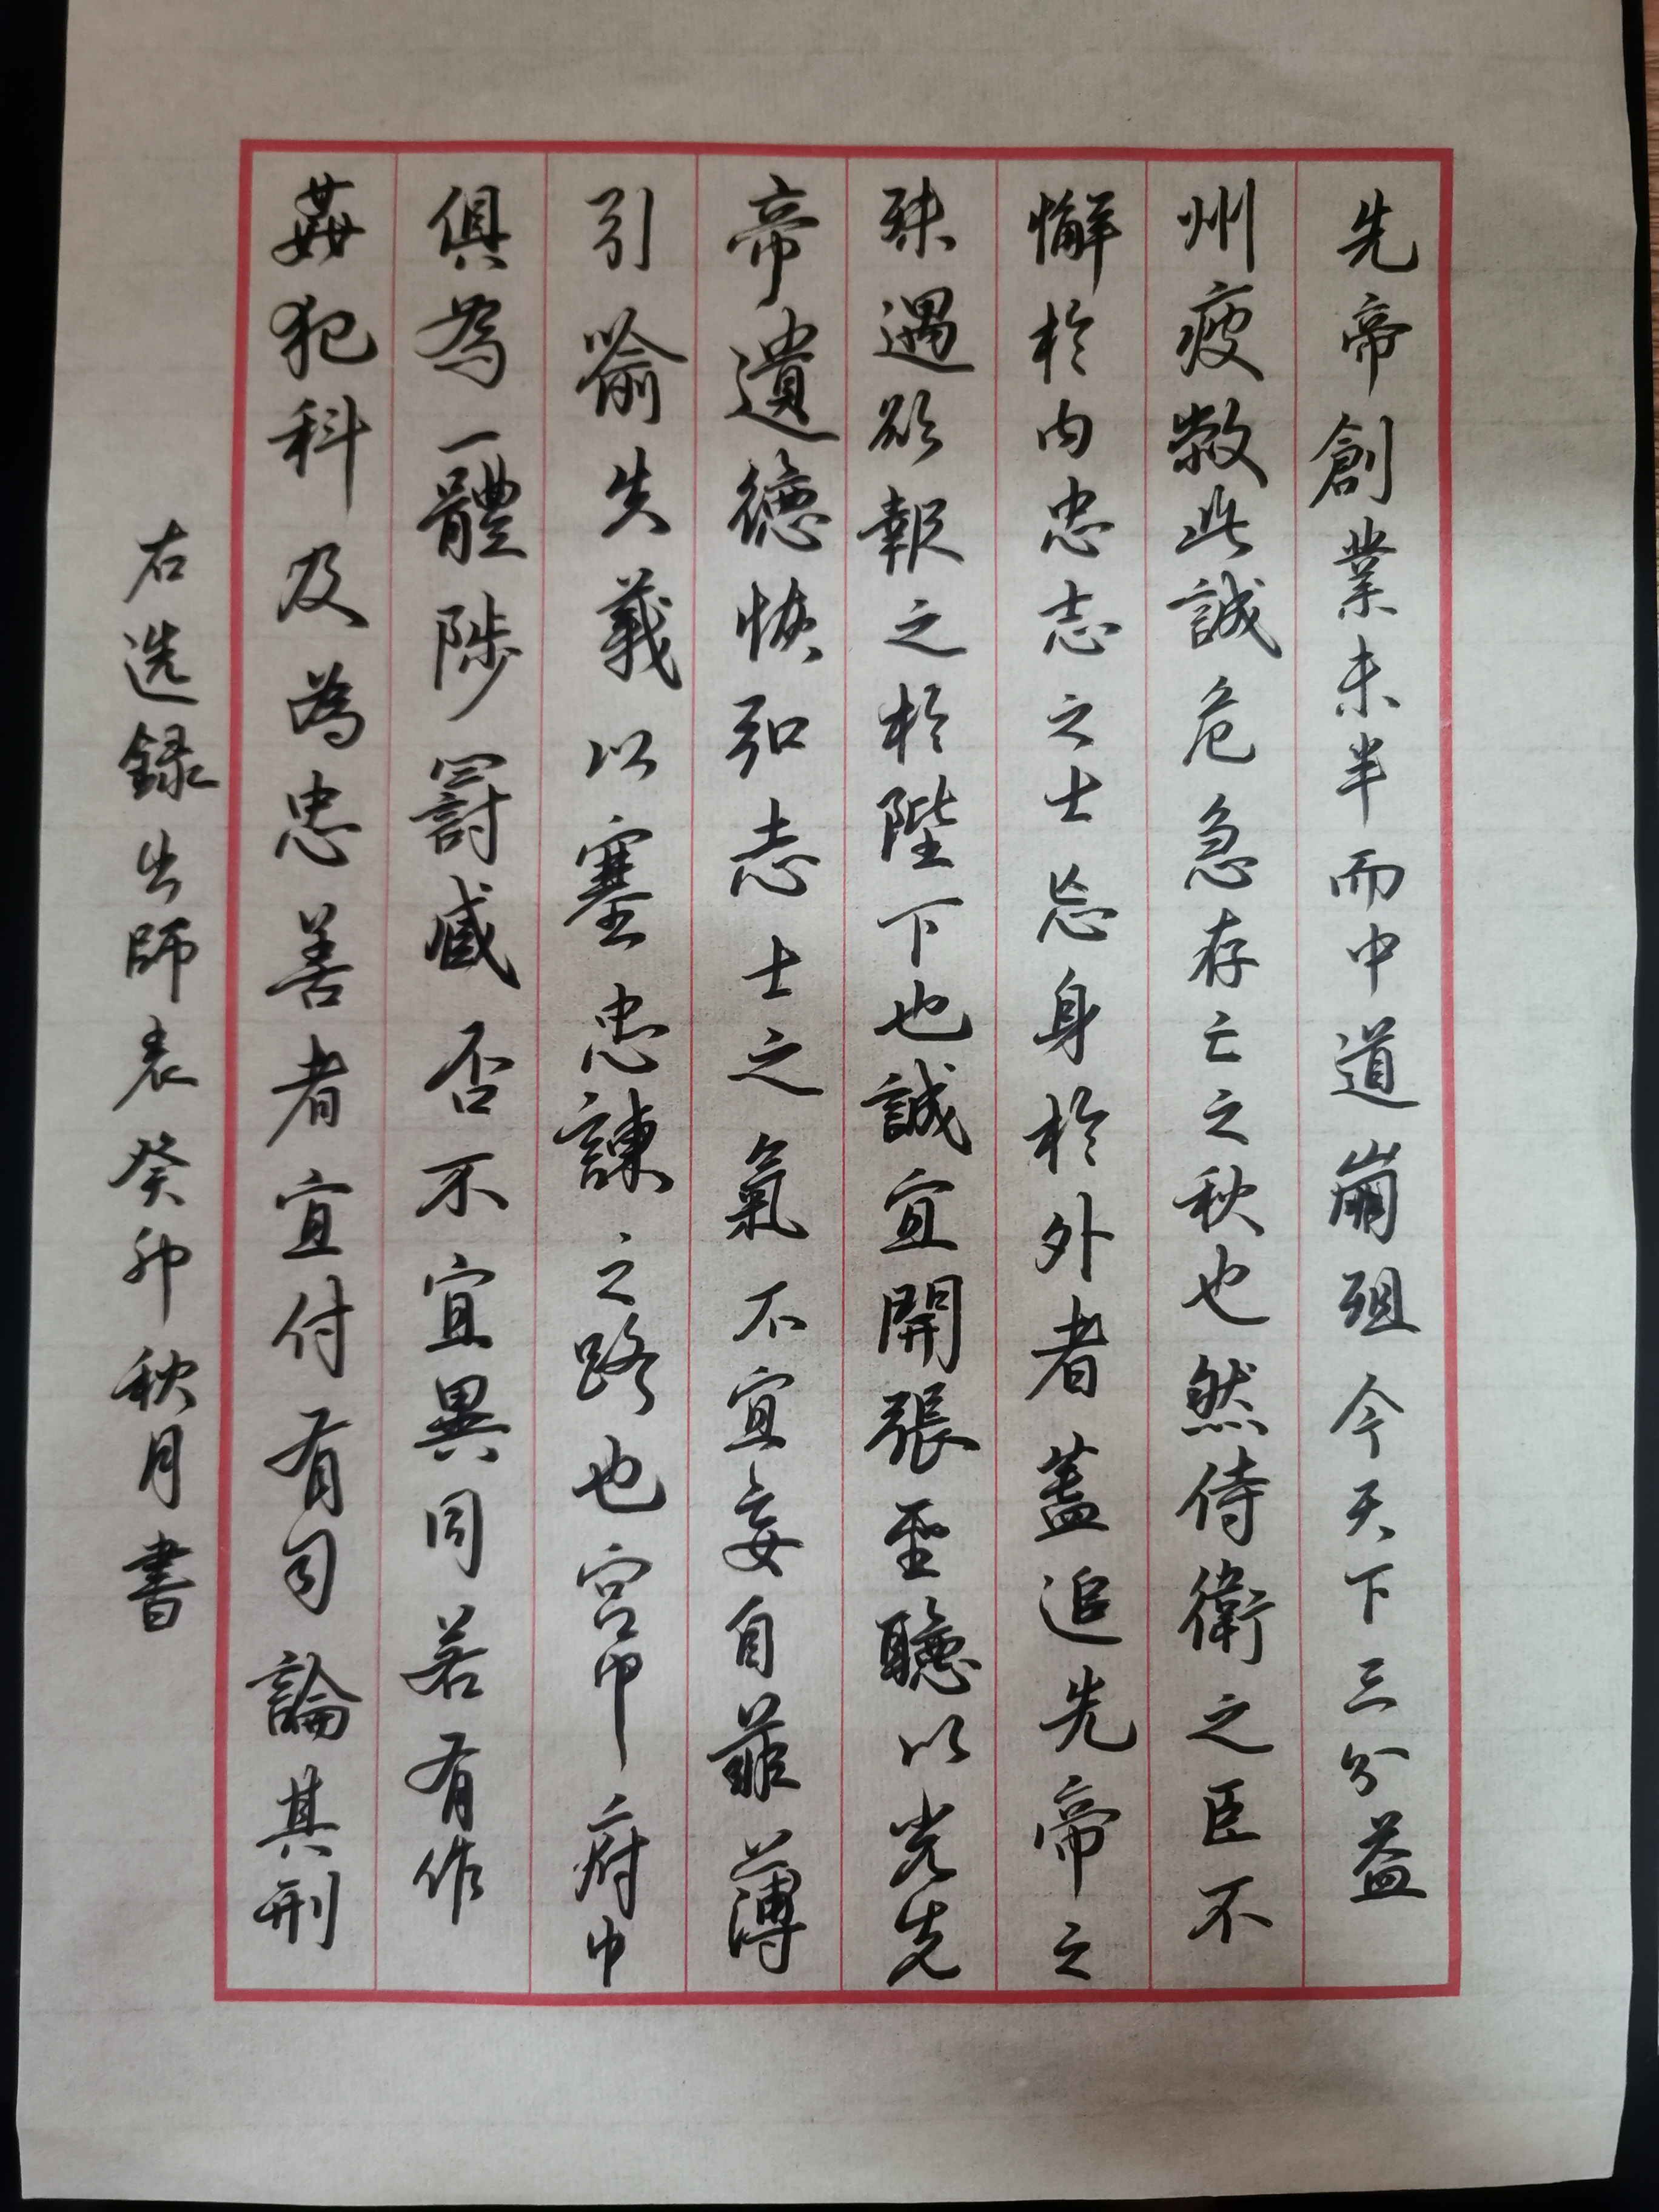 先帝創業未半而中道崩殂今天下三分益
州疲敝此誠危急存亡之秋也然侍衛之臣不
懈於內忠志之士忘身於外者蓋追先帝之
殊遇欲報之於陛下也誠宜開張聖聽以光先
帝遺德恢弘志士之氣不宜妄自菲薄
引喻失義以塞忠諫之路也宮中府中
俱為一體陟罰臧否不宜異同若有作
姦犯科及為忠善者宜付有司論其刑
右选録出師表癸卯秋月書